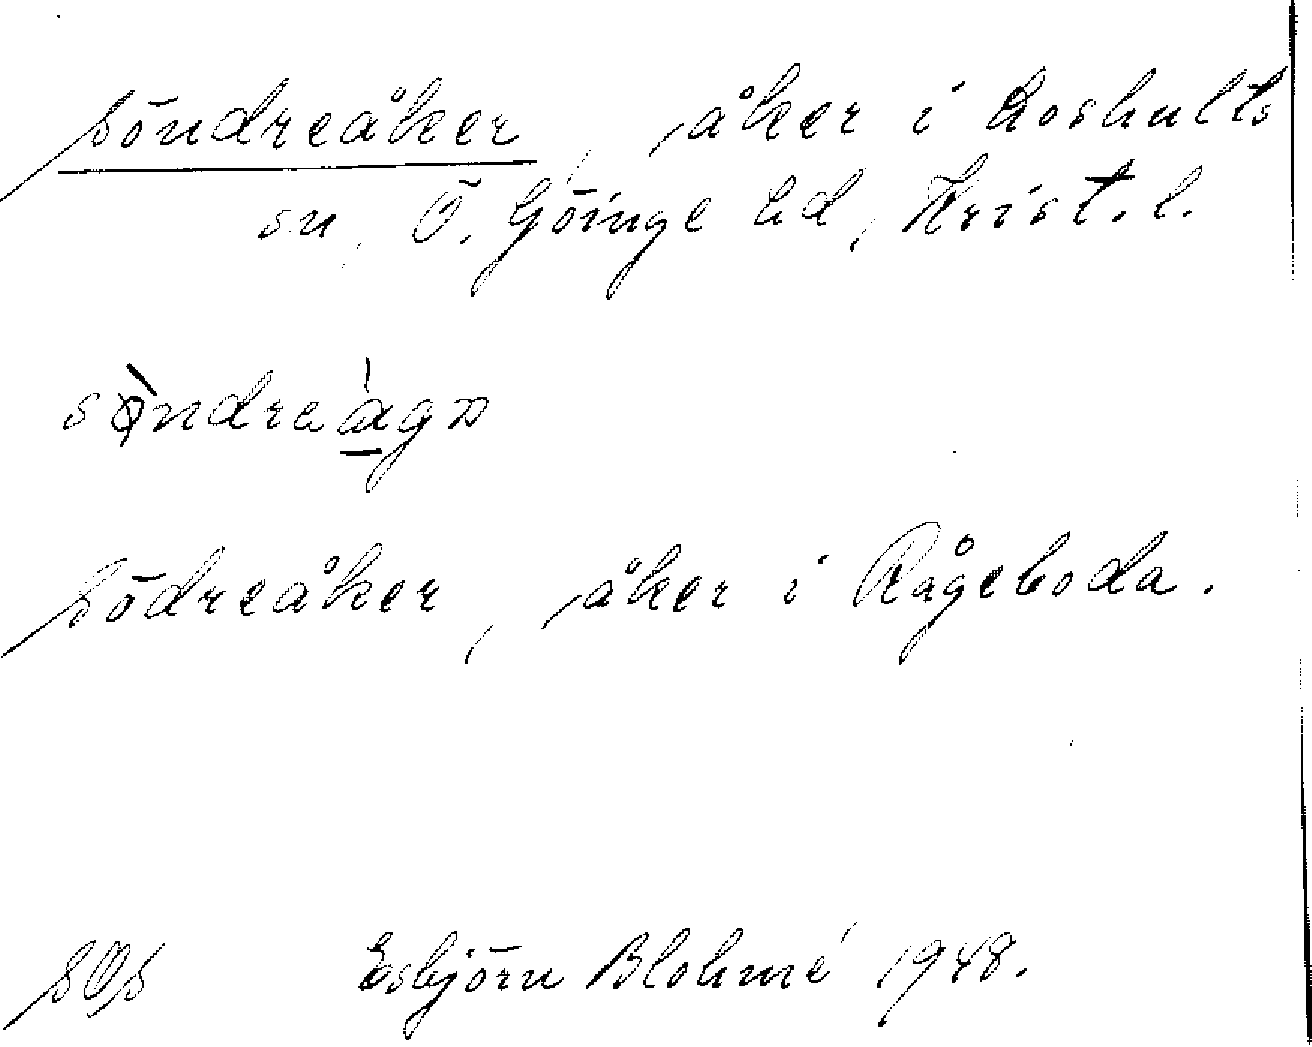 Söndreåker, åker i Loshults
sn, Ö. Göinge hd, Krist. l.
söndreågɔ
Södreåker, åker i Rågeboda.
SOS Esbjörn Blohmé 1948.